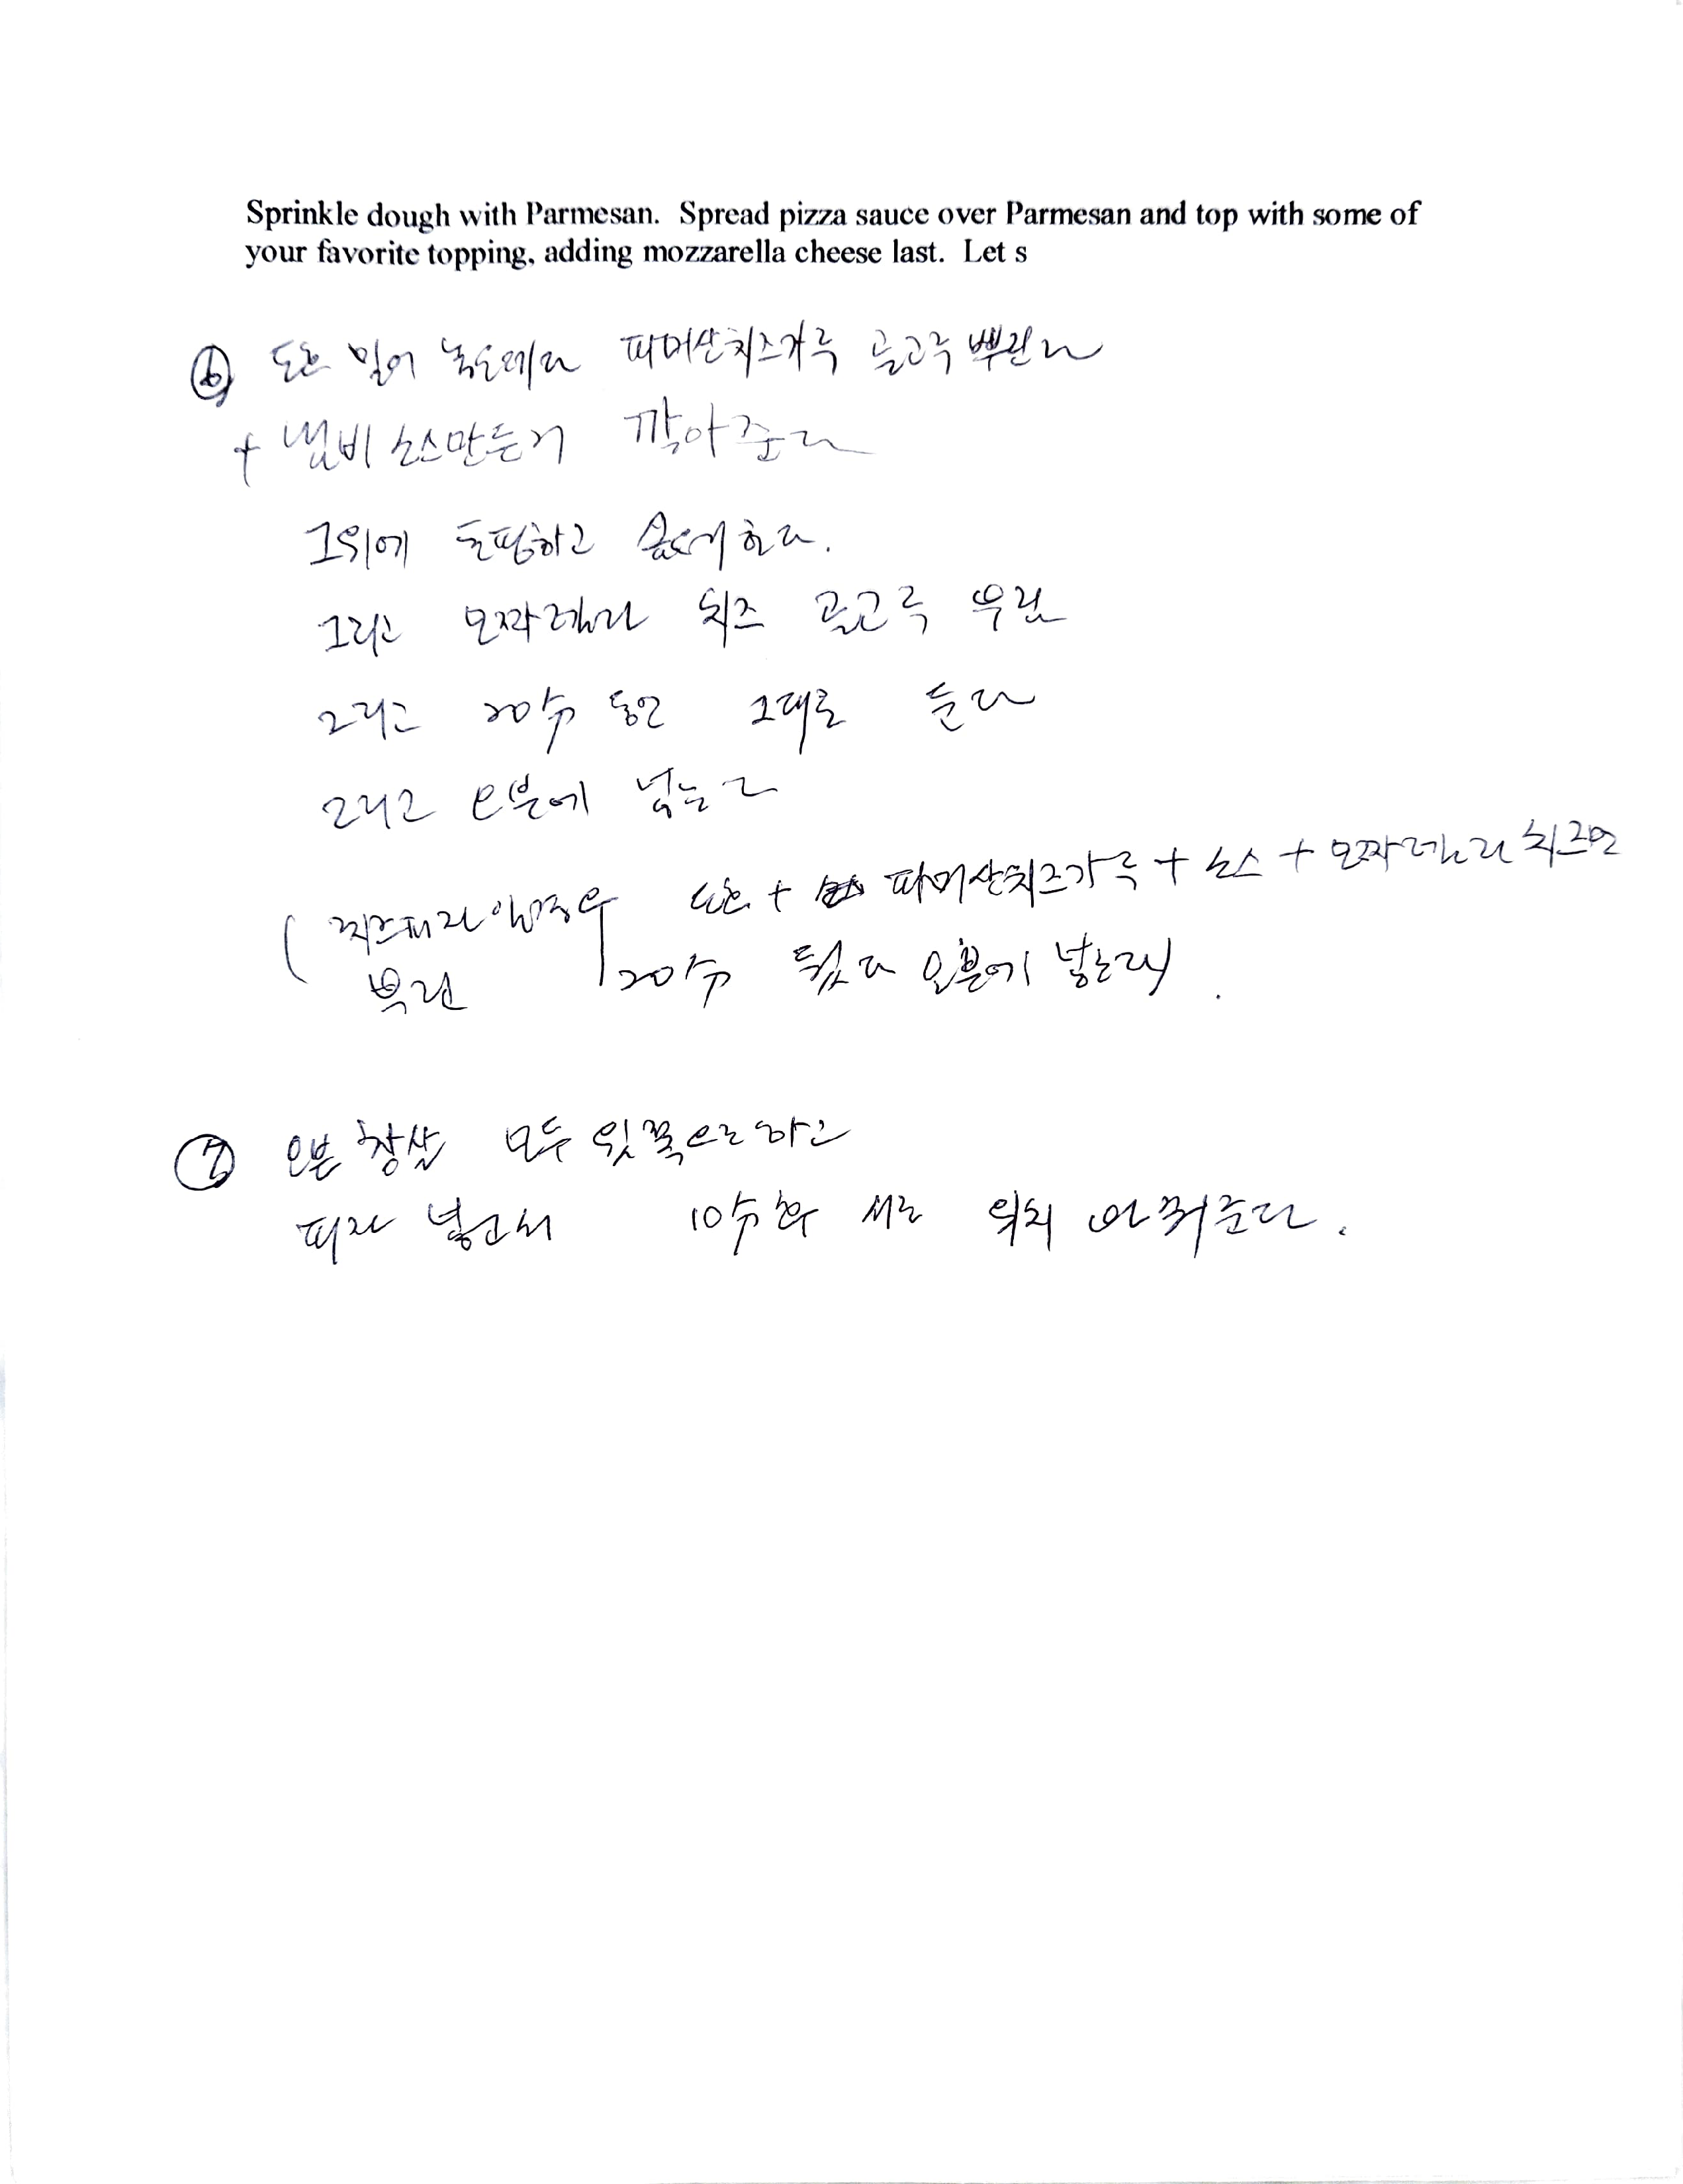 Sprinkle dough with Parmesan.  Spread pizza sauce over Parmesan and top with some of
your favorite topping, adding mozzarella cheese last.  Let s
⑥ 도우 밀어 파머산치즈가루 골고루 뿌린다
+ 소스만든거
그위에 토핑하고
그리고 모짜렐라 치즈 골고루 뿌림
그리고 20分 동안 그대로 둔다
그리고 오븐에 넣는다
( 치즈피자 경우 도우 + 파머산치즈가루 + 소스 + 모짜렐라 치즈만
뿌린 20分 뒀다 오븐에 넣는다)
⑦ 오븐 창살 모두 윗쪽으로하고
피자 넣고서 10分후 서로 위치 바꿔준다.